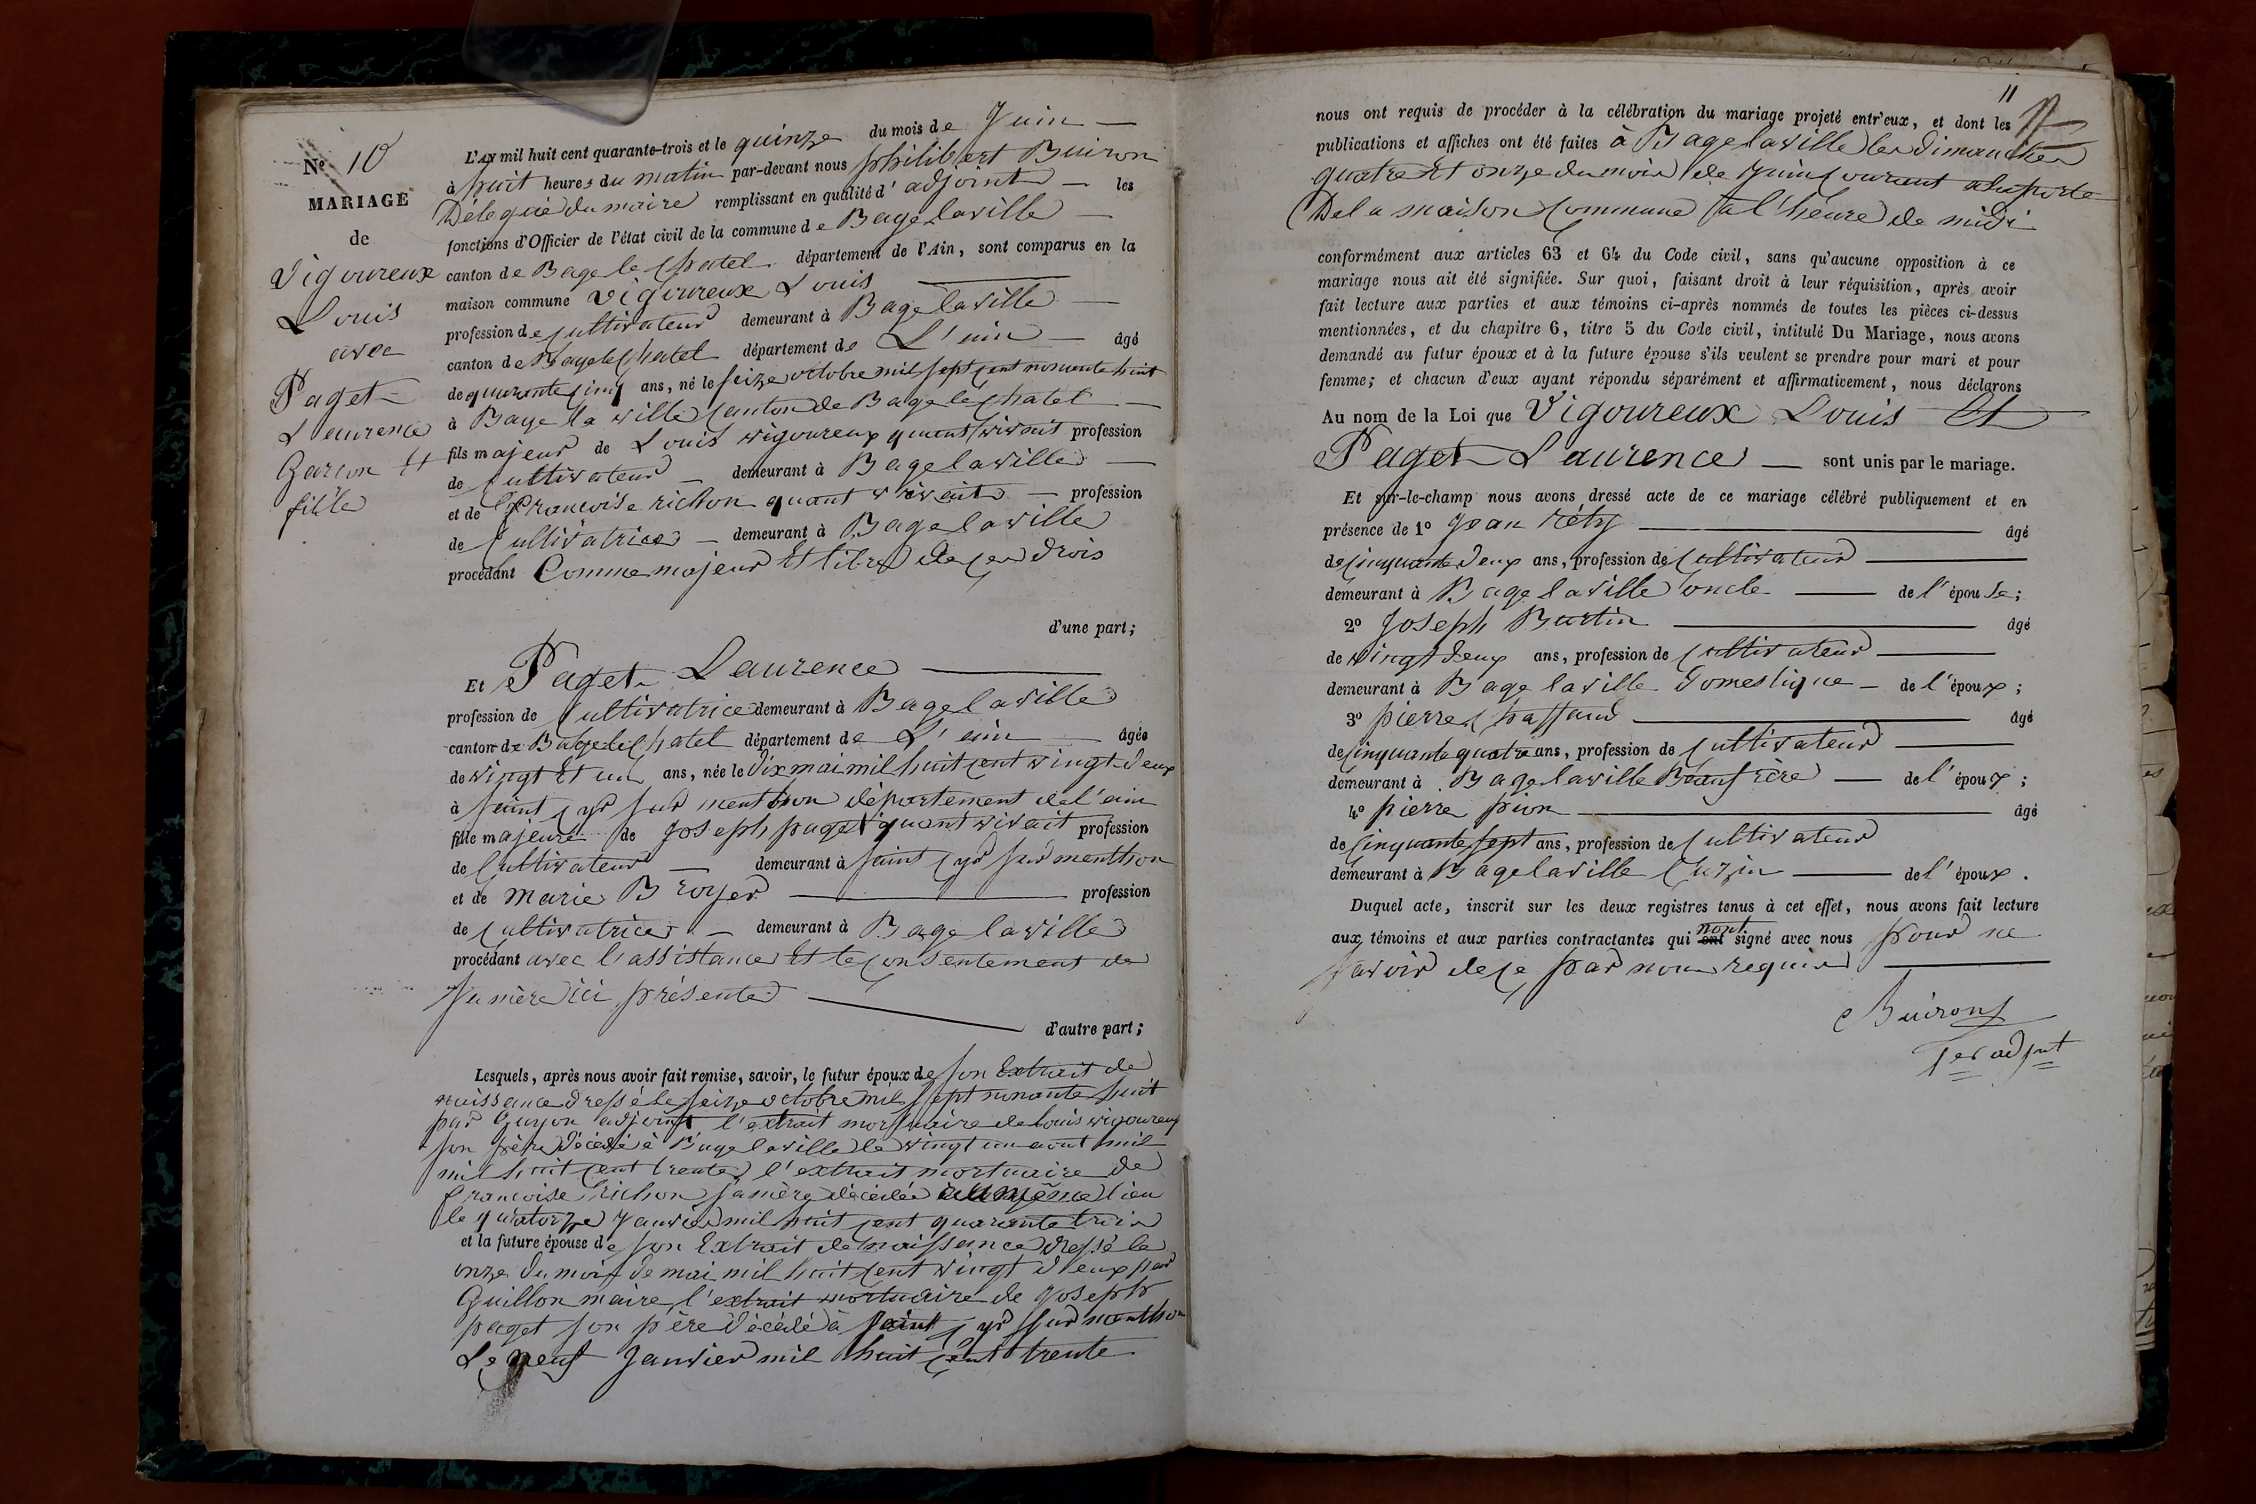 N° 10
MARIAGE
de
Vigoureux
Louis
avec
Paget
Laurence
Garcon Et
fille
L'An mil huit cent quarante-trois et le quinze du mois de Juin
à huit heures du matin par-devant nous philibert Buiron
Délégué du maire remplissant en qualité d'adjoint les
fonctions d'Officier de l'état civil de la commune de Bage laville
canton de Bage le Chatel département de l'Ain, sont comparus en la
maison commune Vigoureux Louis
profession de cultivateur demeurant à Bage laville
canton de Bage le Chatel département de L'ain âgé
de quarente cinq ans, né le seize octobre mil sept cent nonente huit
à Bage la ville canton de Bage le Chatel
fils majeur de Louis vigoureux quant vivait profession
de cultivateur demeurant à Bage laville
et de francoise richon quant vivait profession
de cultivatrice demeurant à Bage laville
procédant Comme majeur Et libre de ces drois
d'une part;
Et Paget Laurence
profession de cultivatrice demeurant à Bage laville
canton de Bage le Chatel département de L'ain âgée
de vingt Et un ans, née le dix mai mil huit cent vingt deux
à saint cyr sur menthon département de l'ain
fille majeure de Joseph paget quant vivait profession
de cultivateur demeurant à saint cyr sur menthon
et de marie Broyer profession
de cultivatrice demeurant à Bage laville
procédant avec l'assistance Et le consentement de
sa mère ici présente
d'autre part;
Lesquels, après nous avoir fait remise, savoir, le futur époux de son Extrait de
naissance dressé le seize octobre mil sept nonante huit
par Guyon adjoint l'extrait mortuaire de louis vigoureux
son père décédé à Bage laville le vingt un aout mil
mil huit cent trente l'extrait mortuaire de
francoise richon sa mère décédée au même lieu
le quatorze Janvier mil huit cent quarante trois
et la future épouse de son Extrait de naissance dressé le
onze du mois de mai mil huit cent vingt deux par
Guillon maire, l'extrait mortuaire de Joseph
paget son père décédé à saint cyr sur menthon
Le neuf Janvier mil huit cent trente
11
nous ont requis de procéder à la célébration du mariage projeté entr'eux, et dont les
publications et affiches ont été faites à Bage laville les dimanches
quatre Et onze du mois de Juin courant a la porte
De la maison commune a l'heure de midi
conformément aux articles 63 et 64 du Code civil, sans qu'aucune opposition à ce
mariage nous ait été signifiée. Sur quoi, faisant droit à leur réquisition, après avoir
fait lecture aux parties et aux témoins ci-après nommés de toutes les pièces ci-dessus
mentionnées, et du chapitre 6, titre 5 du Code civil, intitulé Du Mariage, nous avons
demandé au futur époux et à la future épouse s'ils veulent se prendre pour mari et pour
femme; et chacun d'eux ayant répondu séparément et affirmativement, nous déclarons
Au nom de la Loi que Vigoureux Louis Et
Paget Laurence sont unis par le mariage.
Et sur-le-champ nous avons dressé acte de ce mariage célébré publiquement et en
présence de 1° Jean réty âgé
de cinquante deux ans, profession de cultivateur
demeurant à Bage laville oncle de l'épouse;
2° Joseph Burtin âgé
de vingt deux ans, profession de cultivateur
demeurant à Bage laville Domestique de l'époux;
3° pierre Chaffaud âgé
de cinquante quatre ans, profession de cultivateur
demeurant à Bage laville Beaufrère de l'époux;
4° pierre pion âgé
de cinquante sept ans, profession de cultivateur
demeurant à Bage laville Cuzin de l'époux.
Duquel acte, inscrit sur les deux registres tenus à cet effet, nous avons fait lecture
aux témoins et aux parties contractantes qui nont signé avec nous pour ne
savoir de ce par nous requis
Buiron
1er adjnt